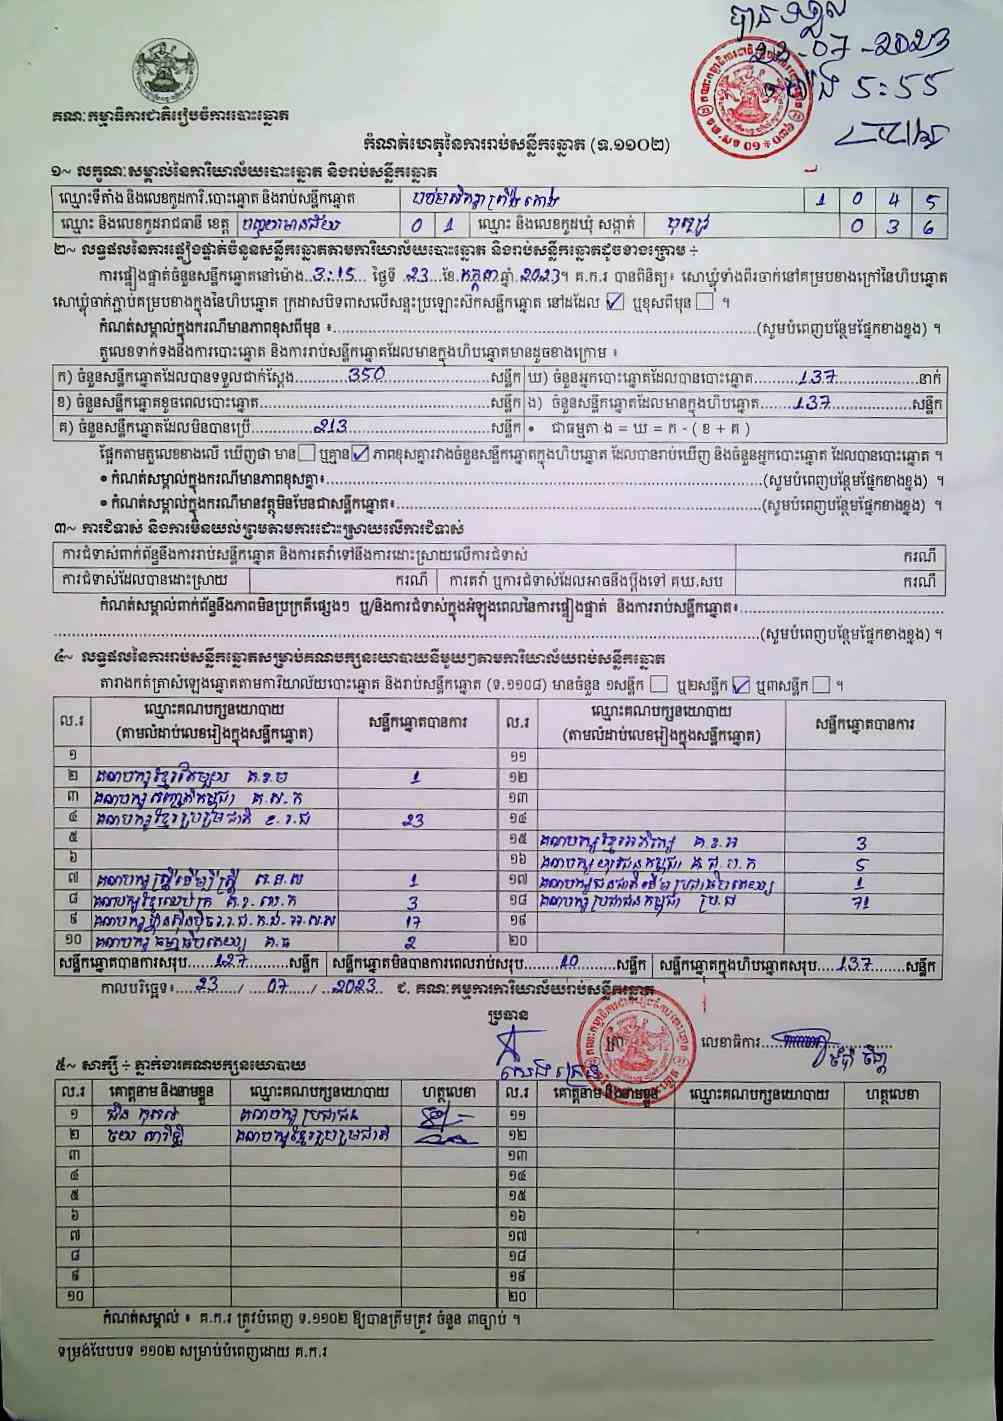 បានឃើញ
23-07-2023
ម៉ោង ៥:៥៥
គណៈកម្មាធិការជាតិរៀបចំការបោះឆ្នោត
កំណត់ហេតុនៃការរាប់សន្លឹកឆ្នោត (ទ.១១០២)
១~ លក្ខណៈសម្គាល់នៃការិយាល័យបោះឆ្នោត និងរាប់សន្លឹកឆ្នោត
ឈ្មោះទីតាំង និងលេខកូដការិ.បោះឆ្នោត និងរាប់សន្លឹកឆ្នោត 1 0 4 5
ឈ្មោះ និងលេខកូដរាជធានី ខេត្ត បន្ទាយមានជ័យ 0 1 ឈ្មោះ និងលេខកូដឃុំ សង្កាត់ 0 3 6
២~ លទ្ធផលនៃការផ្ទៀងផ្ទាត់ចំនួនសន្លឹកឆ្នោតតាមការិយាល័យបោះឆ្នោត និងរាប់សន្លឹកឆ្នោតដូចខាងក្រោម ÷
ការផ្ទៀងផ្ទាត់ចំនួនសន្លឹកឆ្នោតនៅម៉ោង 3:15 ថ្ងៃទី 23 ខែ កក្កដា ឆ្នាំ 2023។ គ.ក.រ បានពិនិត្យ៖ សោឃ្មុំទាំងពីរចាក់នៅគម្របខាងក្រៅនៃហិបឆ្នោត
សោឃ្មុំចាក់ភ្ជាប់គម្របខាងក្នុងនៃហិបឆ្នោត ក្រដាសបិទពាសលើសន្ទះប្រឡោះស៊កសន្លឹកឆ្នោត នៅដដែល ☑ ឬខុសពីមុន ☐ ។
កំណត់សម្គាល់ក្នុងករណីមានភាពខុសពីមុន ៖ (សូមបំពេញបន្ថែមផ្នែកខាងខ្នង) ។
តួលេខទាក់ទងនឹងការបោះឆ្នោត និងការរាប់សន្លឹកឆ្នោតដែលមានក្នុងហិបឆ្នោតមានដូចខាងក្រោម ៖
ក) ចំនួនសន្លឹកឆ្នោតដែលបានទទួលជាក់ស្តែង 350 សន្លឹក ឃ) ចំនួនអ្នកបោះឆ្នោតដែលបានបោះឆ្នោត 137 នាក់
ខ) ចំនួនសន្លឹកឆ្នោតខូចពេលបោះឆ្នោត សន្លឹក ង) ចំនួនសន្លឹកឆ្នោតដែលមានក្នុងហិបឆ្នោត 137 សន្លឹក
គ) ចំនួនសន្លឹកឆ្នោតដែលមិនបានប្រើ 213 សន្លឹក • ជាធម្មតា ង = ឃ = ក - ( ខ + គ )
ផ្អែកតាមតួលេខខាងលើ ឃើញថា មាន ☐ ឬគ្មាន ☑ ភាពខុសគ្នារវាងចំនួនសន្លឹកឆ្នោតក្នុងហិបឆ្នោត ដែលបានរាប់ឃើញ និងចំនួនអ្នកបោះឆ្នោត ដែលបានបោះឆ្នោត ។
• កំណត់សម្គាល់ក្នុងករណីមានភាពខុសគ្នា៖ (សូមបំពេញបន្ថែមផ្នែកខាងខ្នង) ។
• កំណត់សម្គាល់ក្នុងករណីមានវត្ថុមិនមែនជាសន្លឹកឆ្នោត៖ (សូមបំពេញបន្ថែមផ្នែកខាងខ្នង) ។
៣~ ការជំទាស់ និងការមិនយល់ព្រមតាមការដោះស្រាយលើការជំទាស់
ការជំទាស់ពាក់ព័ន្ធនឹងការរាប់សន្លឹកឆ្នោត និងការតវ៉ាទៅនឹងការដោះស្រាយលើការជំទាស់ ករណី
ការជំទាស់ដែលបានដោះស្រាយ ករណី ការតវ៉ា ឬការជំទាស់ដែលអាចនឹងប្តឹងទៅ គឃ.សប ករណី
កំណត់សម្គាល់ពាក់ព័ន្ធនឹងភាពមិនប្រក្រតីផ្សេងៗ ឬ/និងការជំទាស់ក្នុងអំឡុងពេលនៃការផ្ទៀងផ្ទាត់ និងការរាប់សន្លឹកឆ្នោត៖
(សូមបំពេញបន្ថែមផ្នែកខាងខ្នង) ។
៤~ លទ្ធផលនៃការរាប់សន្លឹកឆ្នោតសម្រាប់គណបក្សនយោបាយនីមួយៗតាមការិយាល័យរាប់សន្លឹកឆ្នោត
តារាងកត់ត្រាសំឡេងឆ្នោតតាមការិយាល័យបោះឆ្នោត និងរាប់សន្លឹកឆ្នោត (ទ.១១០៨) មានចំនួន ១សន្លឹក ☐ ឬ២សន្លឹក ☑ ឬ៣សន្លឹក ☐ ។
ល.រ ឈ្មោះគណបក្សនយោបាយ (តាមលំដាប់លេខរៀងក្នុងសន្លឹកឆ្នោត) សន្លឹកឆ្នោតបានការ ល.រ ឈ្មោះគណបក្សនយោបាយ (តាមលំដាប់លេខរៀងក្នុងសន្លឹកឆ្នោត) សន្លឹកឆ្នោតបានការ
១ ១១
២ គណបក្សខ្មែរតែមួយ គ.ខ.ម 1 ១២
៣ ១៣
៤ គណបក្សខ្មែររួបរួមជាតិ ខ.រ.ជ 23 ១៤
៥ ១៥ គណបក្សខ្មែរអភិរក្ស គ.ខ.អ 3
៦ ១៦ គណបក្សយុវជនកម្ពុជា 5
៧ គណបក្សស្ត្រីដើម្បីស្ត្រី ស.ដ.ស 1 ១៧ គណបក្សជនជាតិដើមប្រជាធិបតេយ្យ 1
៨ គណបក្សខ្មែរឈប់ក្រ 3 ១៨ គណបក្សប្រជាជនកម្ពុជា ប្រ.ជ 71
៩ គណបក្សហ្វ៊ុនស៊ិនប៉ិច 17 ១៩
១០ គណបក្សធម្មាធិបតេយ្យ គ.ធ 2 ២០
សន្លឹកឆ្នោតបានការសរុប 127 សន្លឹក សន្លឹកឆ្នោតមិនបានការពេលរាប់សរុប 10 សន្លឹក សន្លឹកឆ្នោតក្នុងហិបឆ្នោតសរុប 137 សន្លឹក
កាលបរិច្ឆេទ៖ 23 / 07 / 2023 ជ. គណៈកម្មការការិយាល័យរាប់សន្លឹកឆ្នោត
ប្រធាន
លេខាធិការ
៥~ សាក្សី ÷ ភ្នាក់ងារគណបក្សនយោបាយ
ល.រ គោត្តនាម និងនាមខ្លួន ឈ្មោះគណបក្សនយោបាយ ហត្ថលេខា ល.រ គោត្តនាម និងនាមខ្លួន ឈ្មោះគណបក្សនយោបាយ ហត្ថលេខា
១ គណបក្សប្រជាជន ១១
២ គណបក្សខ្មែររួបរួមជាតិ ១២
៣ ១៣
៤ ១៤
៥ ១៥
៦ ១៦
៧ ១៧
៨ ១៨
៩ ១៩
១០ ២០
កំណត់សម្គាល់ ៖ គ.ក.រ ត្រូវបំពេញ ទ.១១០២ ឱ្យបានត្រឹមត្រូវ ចំនួន ៣ច្បាប់ ។
ទម្រង់បែបបទ ១១០២ សម្រាប់បំពេញដោយ គ.ក.រ